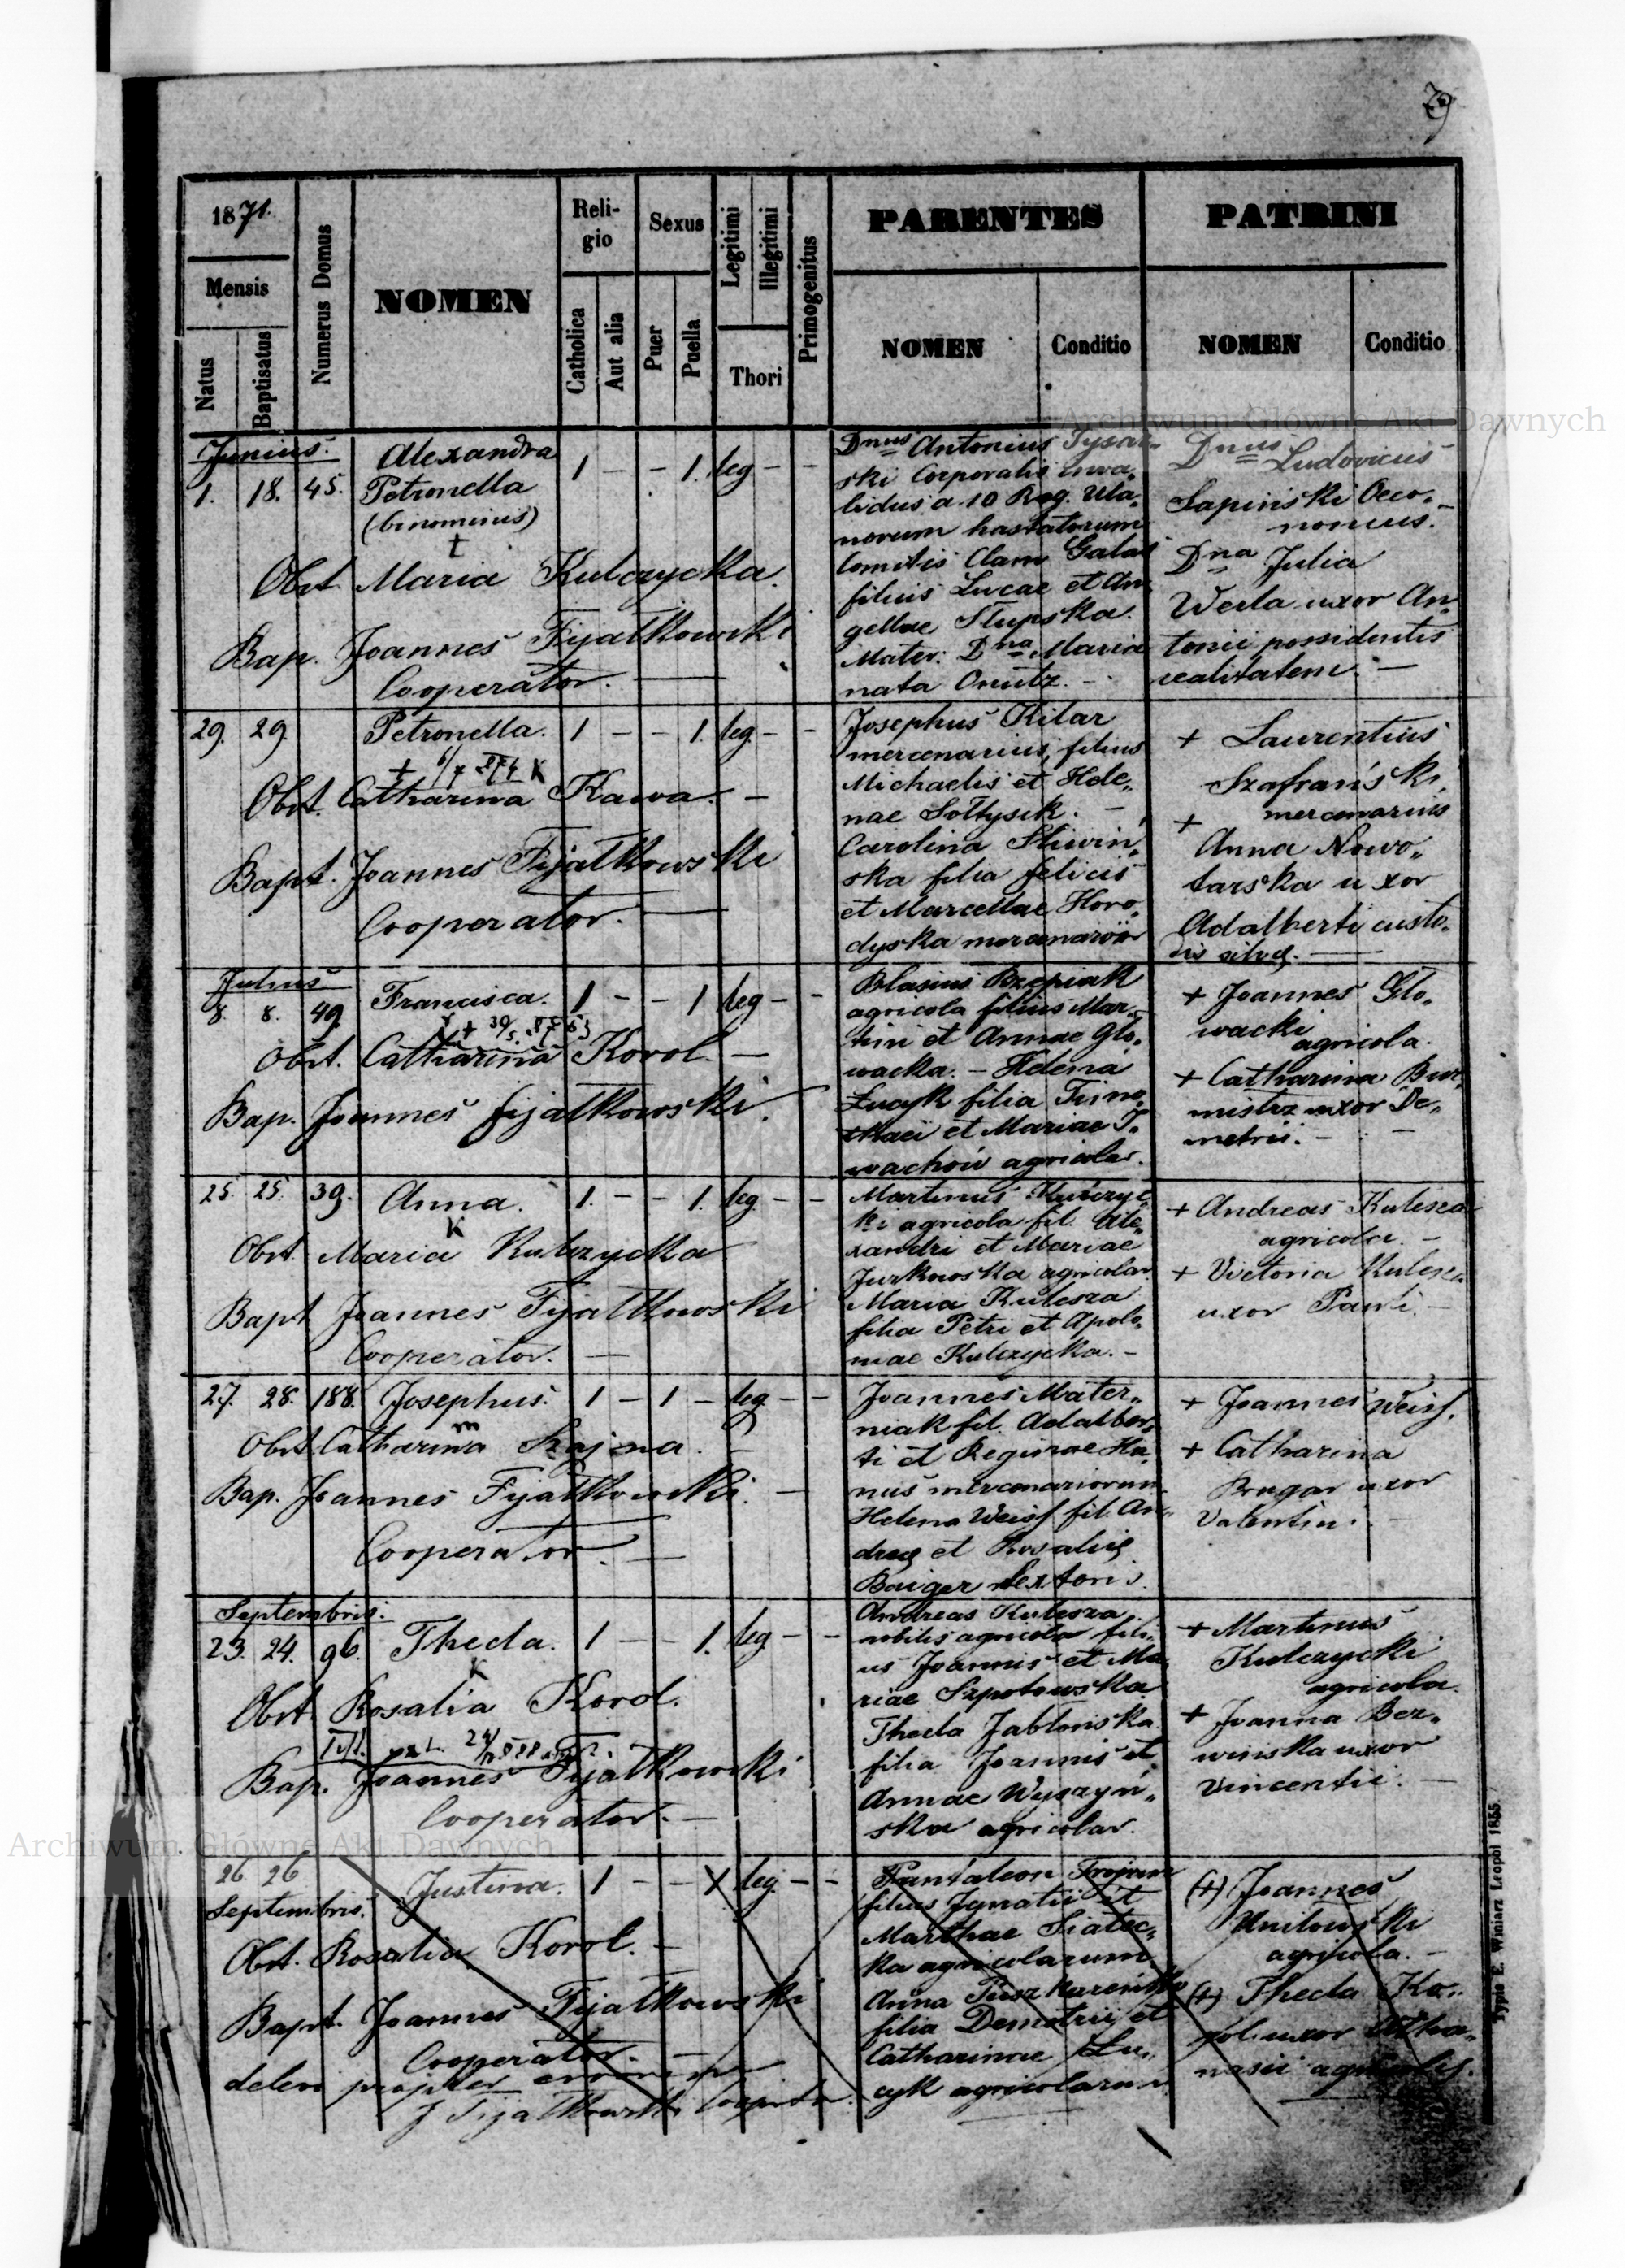 29
1871.
Mensis
Natus
Baptisatus
Numerus Domus
NOMEN
Reli-
gio
Catholica
Aut alia
Sexus
Puer
Puella
Legitimi
Illegitimi
Thori
Primogenitus
PARENTES
NOMEN
Conditio
PATRINI
NOMEN
Conditio
Archiwum Główne Akt Dawnych
Junius.
1. 18. 45.
Alexandra
Petronella
(binominis)
†
1 - - 1. leg - -
Obst. Maria Kulczycka.
Bap. Joannes Fijałkowski
Cooperator.
Dnus Antonius
ski Corporalis inva„
lidus a 10 Reg. Ula„
norum hastatorum
Comitis Clam Galas
filius Lucae et An„
gellae Słupska.
Mater: Dna Maria
nata
Dnus Ludovicus
Sapiński Oeco„
nomus.
Dna Julia
Werla uxor An„
tonii possidentis
realitatem. —
29. 29.
Petronella.
1 - - 1. leg - -
Obst. Catharina Kawa. —
Bapt. Joannes Fijałkowski
Cooperator. —
Josephus Kilar
mercenarius, filius
Michaelis et Hele„
nae Sołtysik. —
Carolina Śliwiń„
ska filia felicis
et Marcellae Horo„
dyska mercenarior
+ Laurentius
Szafrański
mercenarius
+
Anna Nowo„
tarska uxor
Adalberti custo„
dis silvę. —
Julius
8. 8. 49.
Francisca.
1 - - 1 leg - -
Obst. Catharina Korol. —
Bap. Joannes fijałkowski.
Blasius Rzepiak
agricola filius Mar„
tini et Annae Gło„
wacka. - Helena
Łucyk filia Timo„
thaei et Mariae I„
wachów agricolar.
+ Joannes Gło„
wacki
agricola.
+ Catharina Bur„
mistrz uxor De„
metrii. —
25. 25. 39.
Anna.
K
1. - - 1. leg - -
Obst. Maria Kulczycka
Bapt Joannes Fijałkowski
Cooperator. —
Martinus Kulczyc„
ki agricola fil. Ale„
xandri et Mariae
Jurkowska agricolar.
Maria Kulesza
filia Petri et Apolo„
niae Kulczycka. -
+ Andreas Kulesza
agricola. -
+ Victoria Kulesza
uxor Pauli. -
27. 28. 188.
Josephus.
m
1 - 1 - leg - -
Obst. Catharina Szajna. —
Bap. Joannes Fijałkowski. —
Cooperator. —
Joannes Mater„
niak fil. Adalber„
ti et Reginae Ha„
nus mercenariorum
Helena Weiss fil. An„
dreę et Rosalię
Baiger textoris.
+ Joannes Weiss.
+ Catharina
Brugar uxor
Valentini.
Septembris.
23. 24. 96.
Thecla.
K
1 - - 1. leg - -
Obst. Rosalia Korol.
Bap. Joannes Fijałkowski
Cooperator. —
Andreas Kulesza
nobilis agricola fili„
us Joannis et Ma„
riae Szpotowska
Thecla Jabłońska
filia Joannis et
Annae Wyszyń„
ska agricolar.
+ Martinus
Kulczycki
agricola.
+ Joanna Bez„
wińska uxor
Vincentii. —
Archiwum Główne Akt Dawnych
26 26
Septembris.
Justina.
1 - - leg - -
Obst. Rosalia Korol. —
Bapt. Joannes Fijałkowski
Cooperator. —
delevi propter errorem
J Fijałkowski
Pantaleon Trojan
filius Ignatii et
Marthae Siatec„
ka agricolarum.
Anna
filia Demetrii et
Catharinae Łu„
cyk agricolarum
(+) Joannes
Uniłowski
agricola. -
(+) Thecla Ko„
rol uxor Atha„
nasii agricolę.
Typis E. Winiarz Leopol 1855.